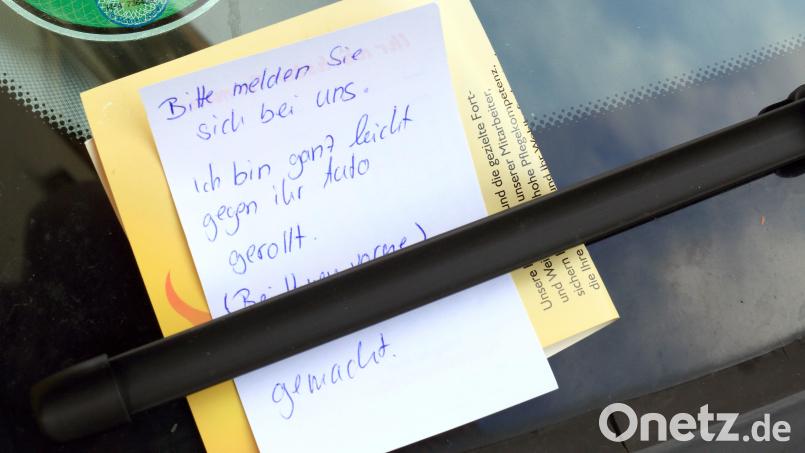 Bitte melden Sie
sich bei uns.
ich bin ganz leicht
gegen ihr Auto
gerollt.
gemacht.
und die gezielte Fort-
unserer Mitarbeiter,
hohe Pflegekompetenz,
und Ihr
Unsere
und Wei
sichern
die Ihre
Onetz.de